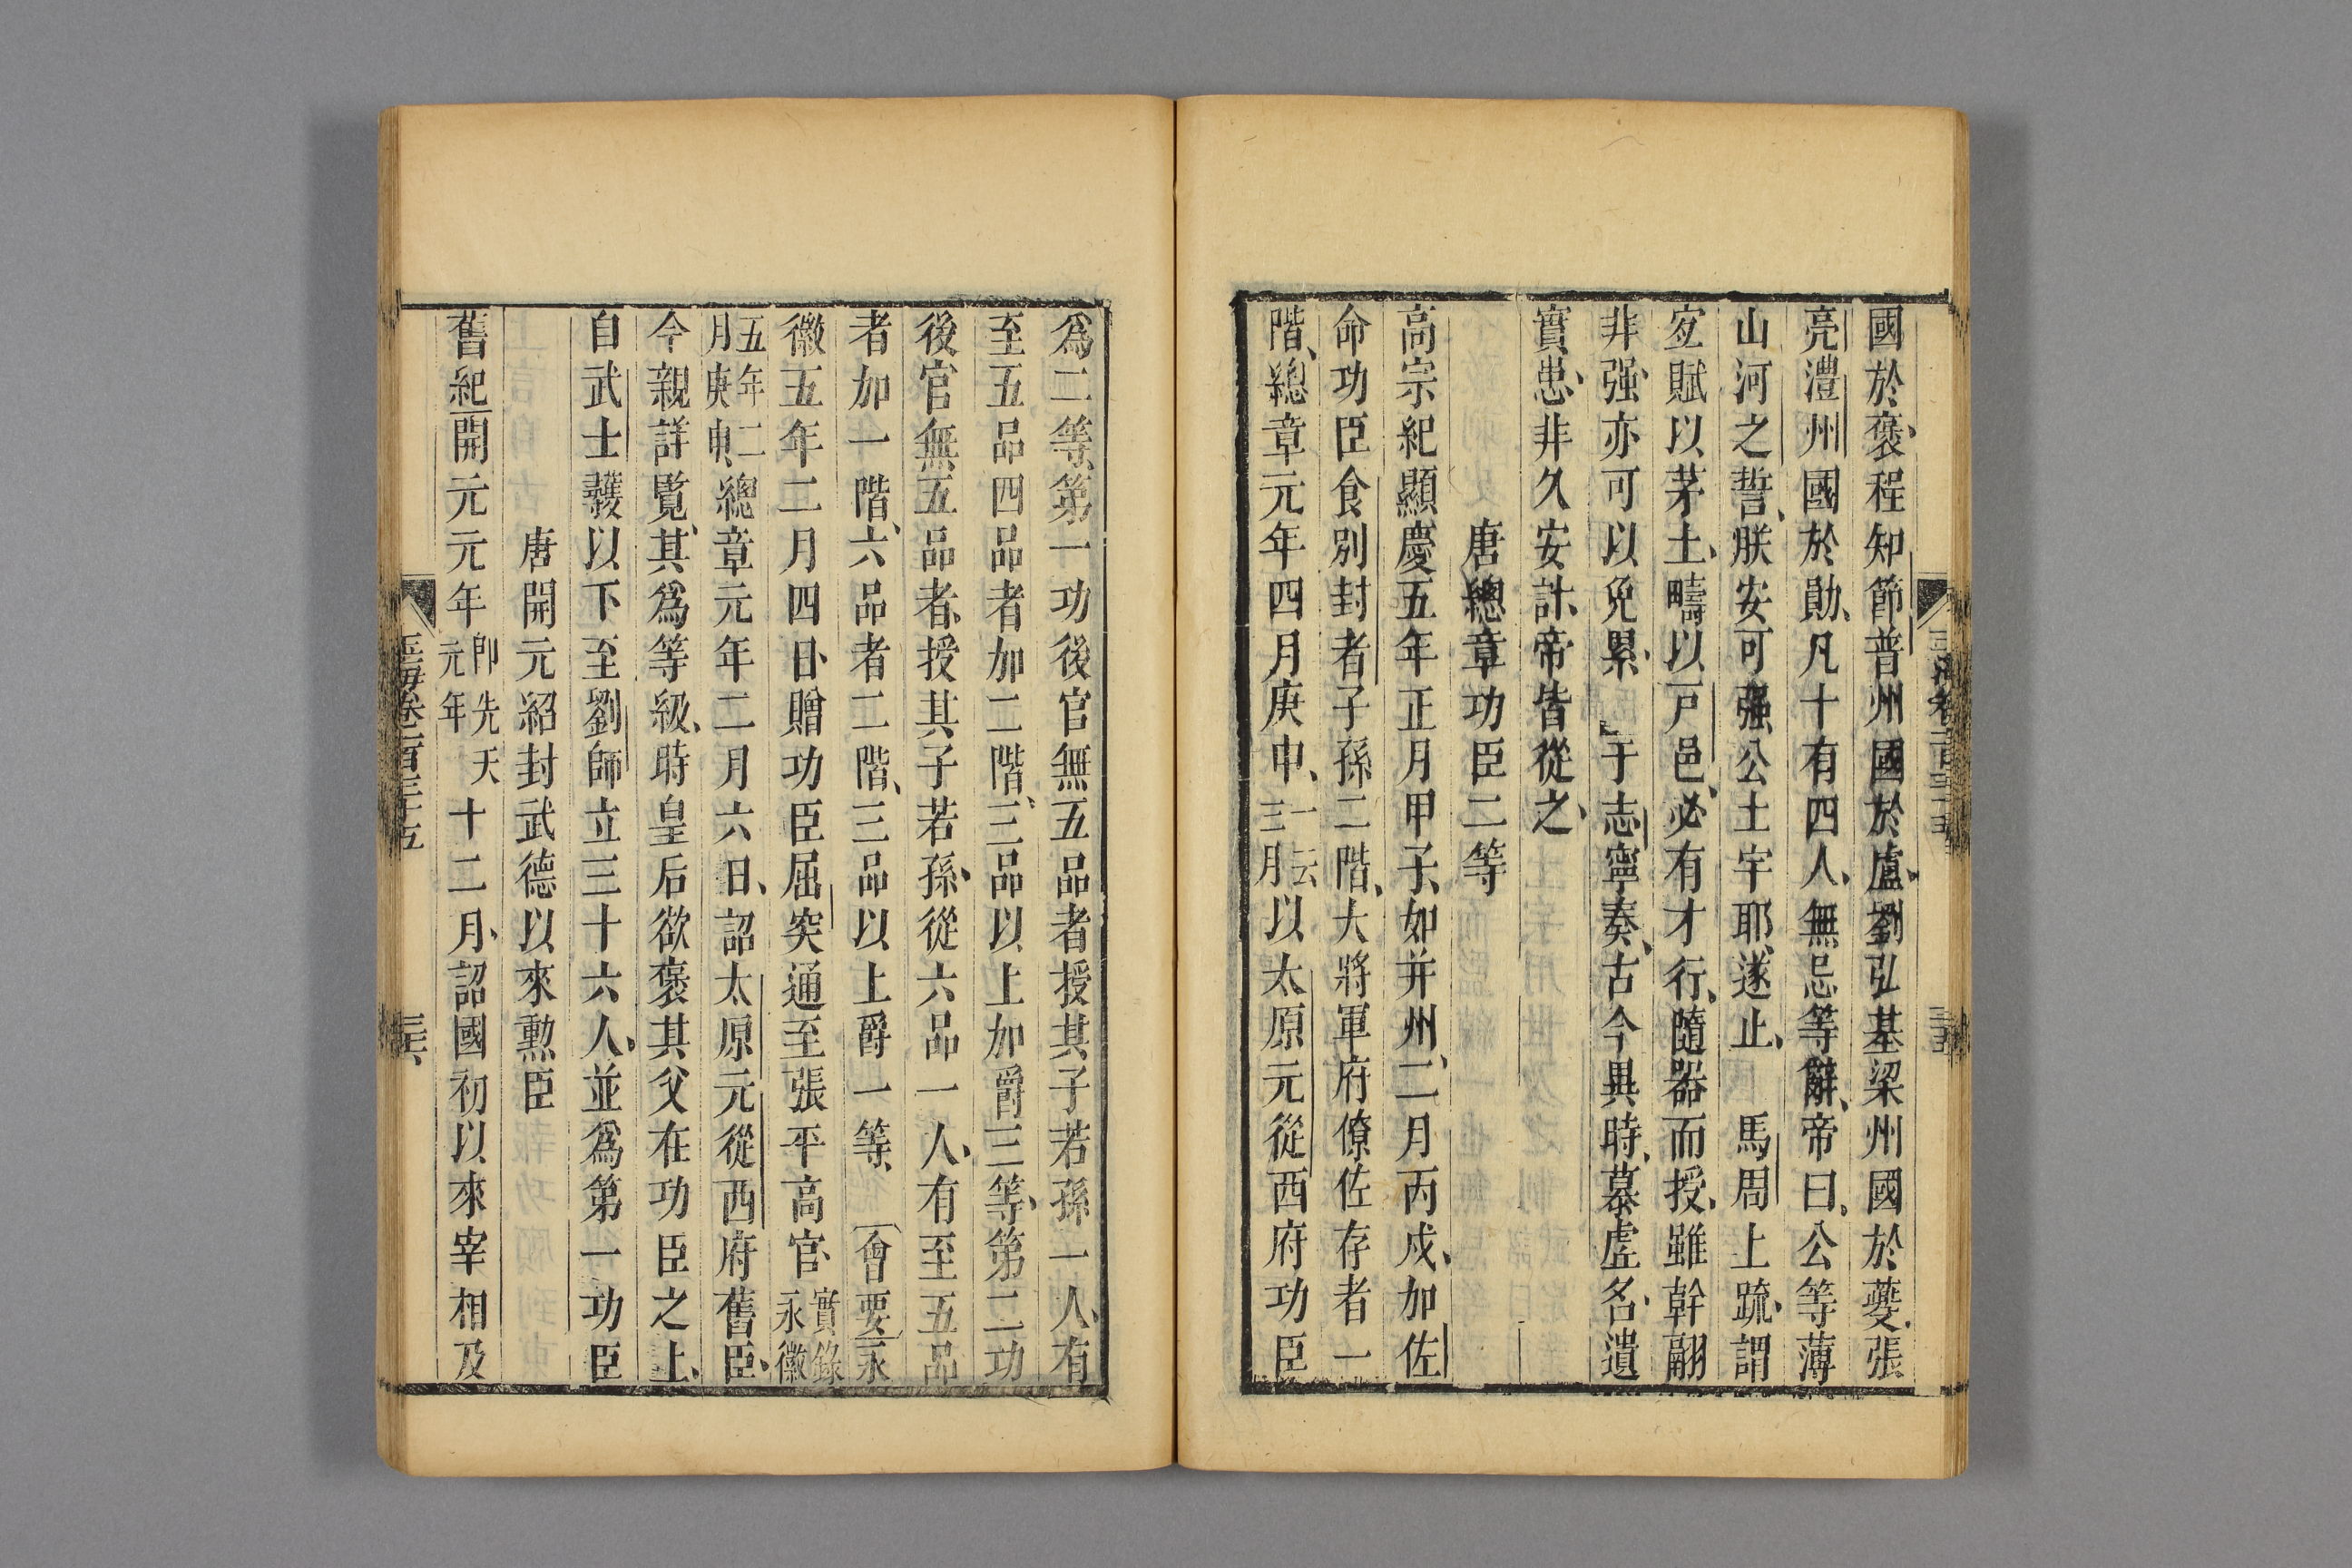 國於褒、程知節普州國於盧、劉弘基梁州國於夔、張
亮澧州國於勛、凡十有四人、無忌等辭、帝曰、公等薄
山河之誓、朕安可强公土宇耶、遂止、馬周上疏、謂
宜賦以茅土、疇以戸邑、必有才行、隨器而授、雖幹翮
非强、亦可以免累、于志寧奏、古今異時、慕虛名、遺
實患、非久安計、帝皆從之、
唐總章功臣二等
高宗紀顯慶五年正月甲子、如并州、二月丙戍、加佐
命功臣食別封者子孫二階、大將軍府僚佐存者一
階、總章元年四月庚申、一云三月以太原元從西府功臣
爲二等、第一功後官無五品者授其子若孫一人、有
至五品四品者加二階、三品以上加爵三等、第二功
後官無五品者、授其子若孫、從六品一人、有至五品
者加一階、六品者二階、三品以上爵一等、會要永
徽五年二月四日、贈功臣屈突通至張平高官、實錄永徽
五年二月庚申、總章元年二月六日、詔太原元從西府舊臣、
今親詳覧、其爲等級、時皇后欲褒其父在功臣之上、
自武士彠以下至劉師立三十六人、並爲第一功臣
唐開元紹封武德以來勲臣
舊紀開元元年卽先天元年十二月、詔國初以來宰相及
玉海卷一百三十五
三六